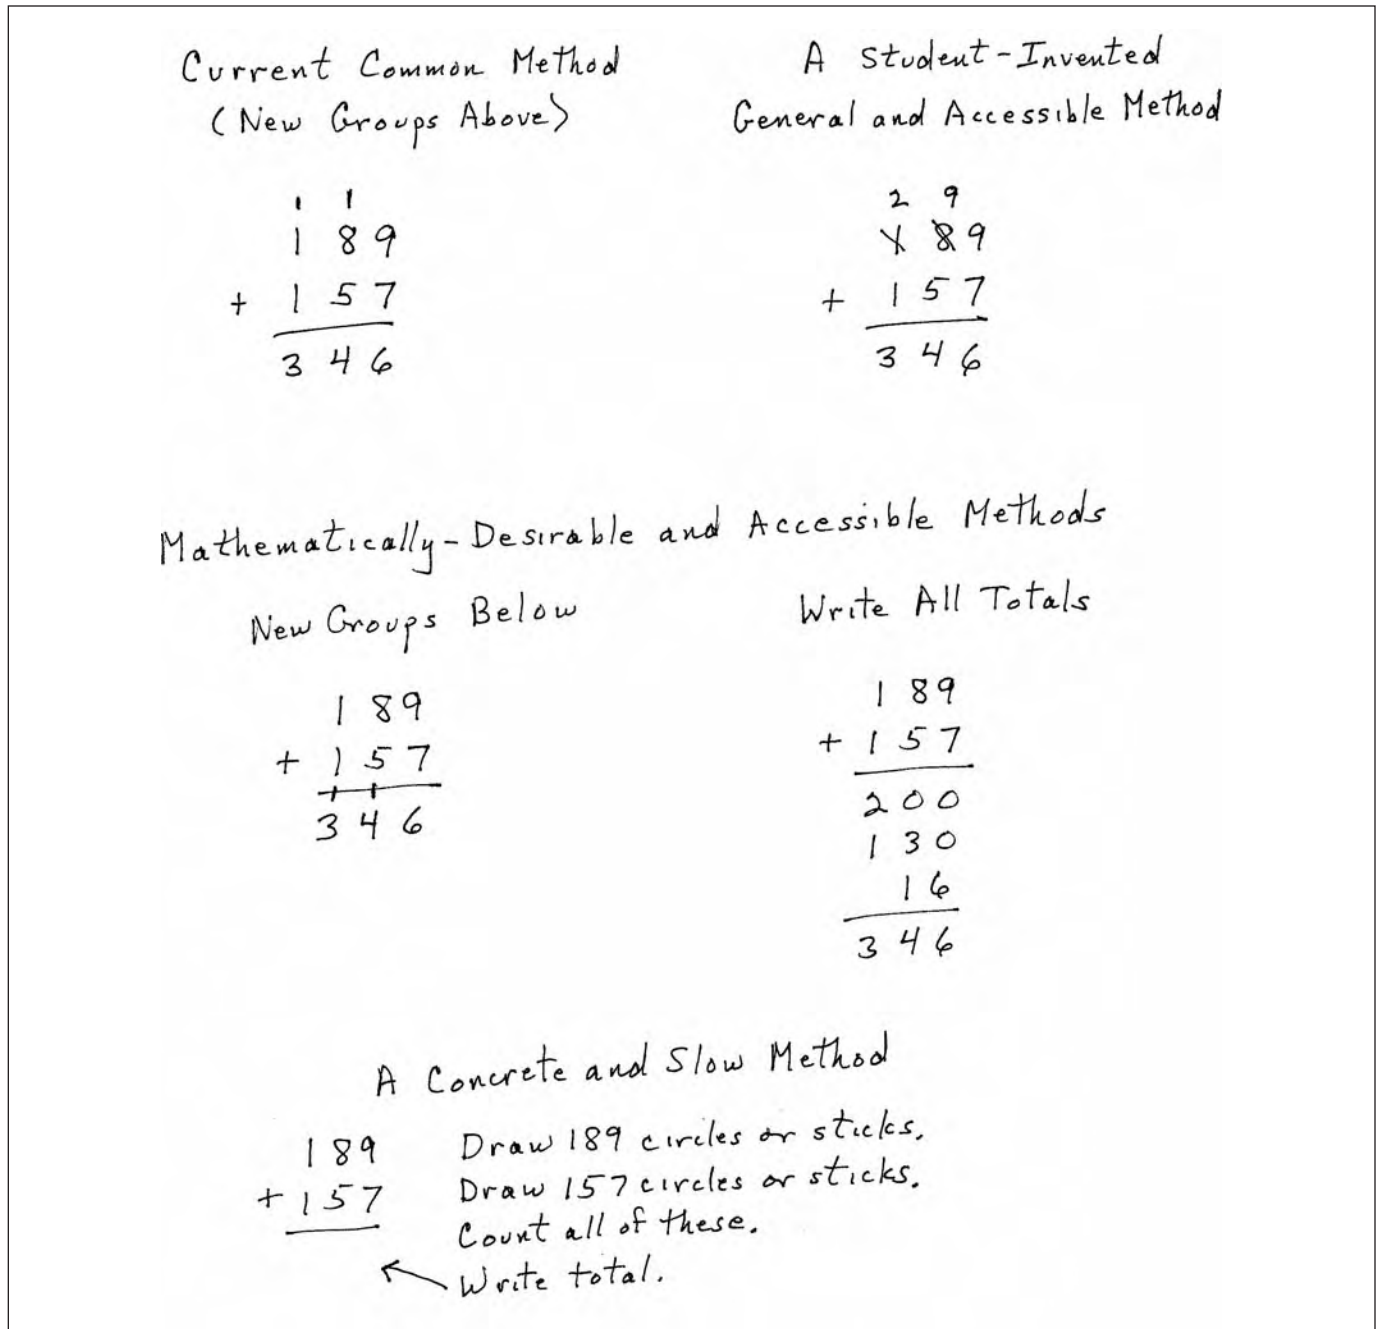 Current Common Method
(New Groups Above)
1 1
1 8 9
+ 1 5 7
3 4 6
A Student-Invented
General and Accessible Method
2 9
1 8 9
+ 1 5 7
3 4 6
Mathematically-Desirable and Accessible Methods
New Groups Below
1 8 9
+ 1 5 7
1 1
3 4 6
Write All Totals
1 8 9
+ 1 5 7
2 0 0
1 3 0
1 6
3 4 6
A Concrete and Slow Method
189
+ 157
Draw 189 circles or sticks.
Draw 157 circles or sticks.
Count all of these.
Write total.